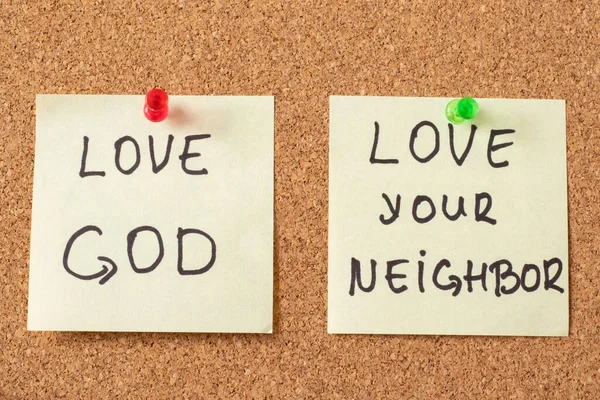 LOVE
GOD
LOVE
YOUR
NEiGHBOR